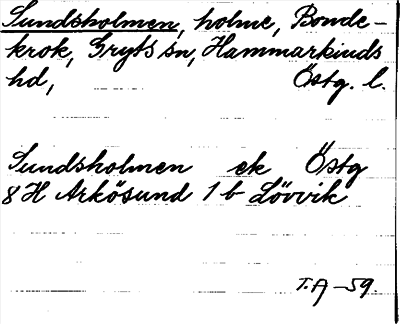 Sundsholmen, holme, Bonde-
krok, Gryts sn, Hammarkinds
hd, Östg. l.
Sundsholmen ek Östg
8 H Arkösund 1 b Lövvik
T.A -59.